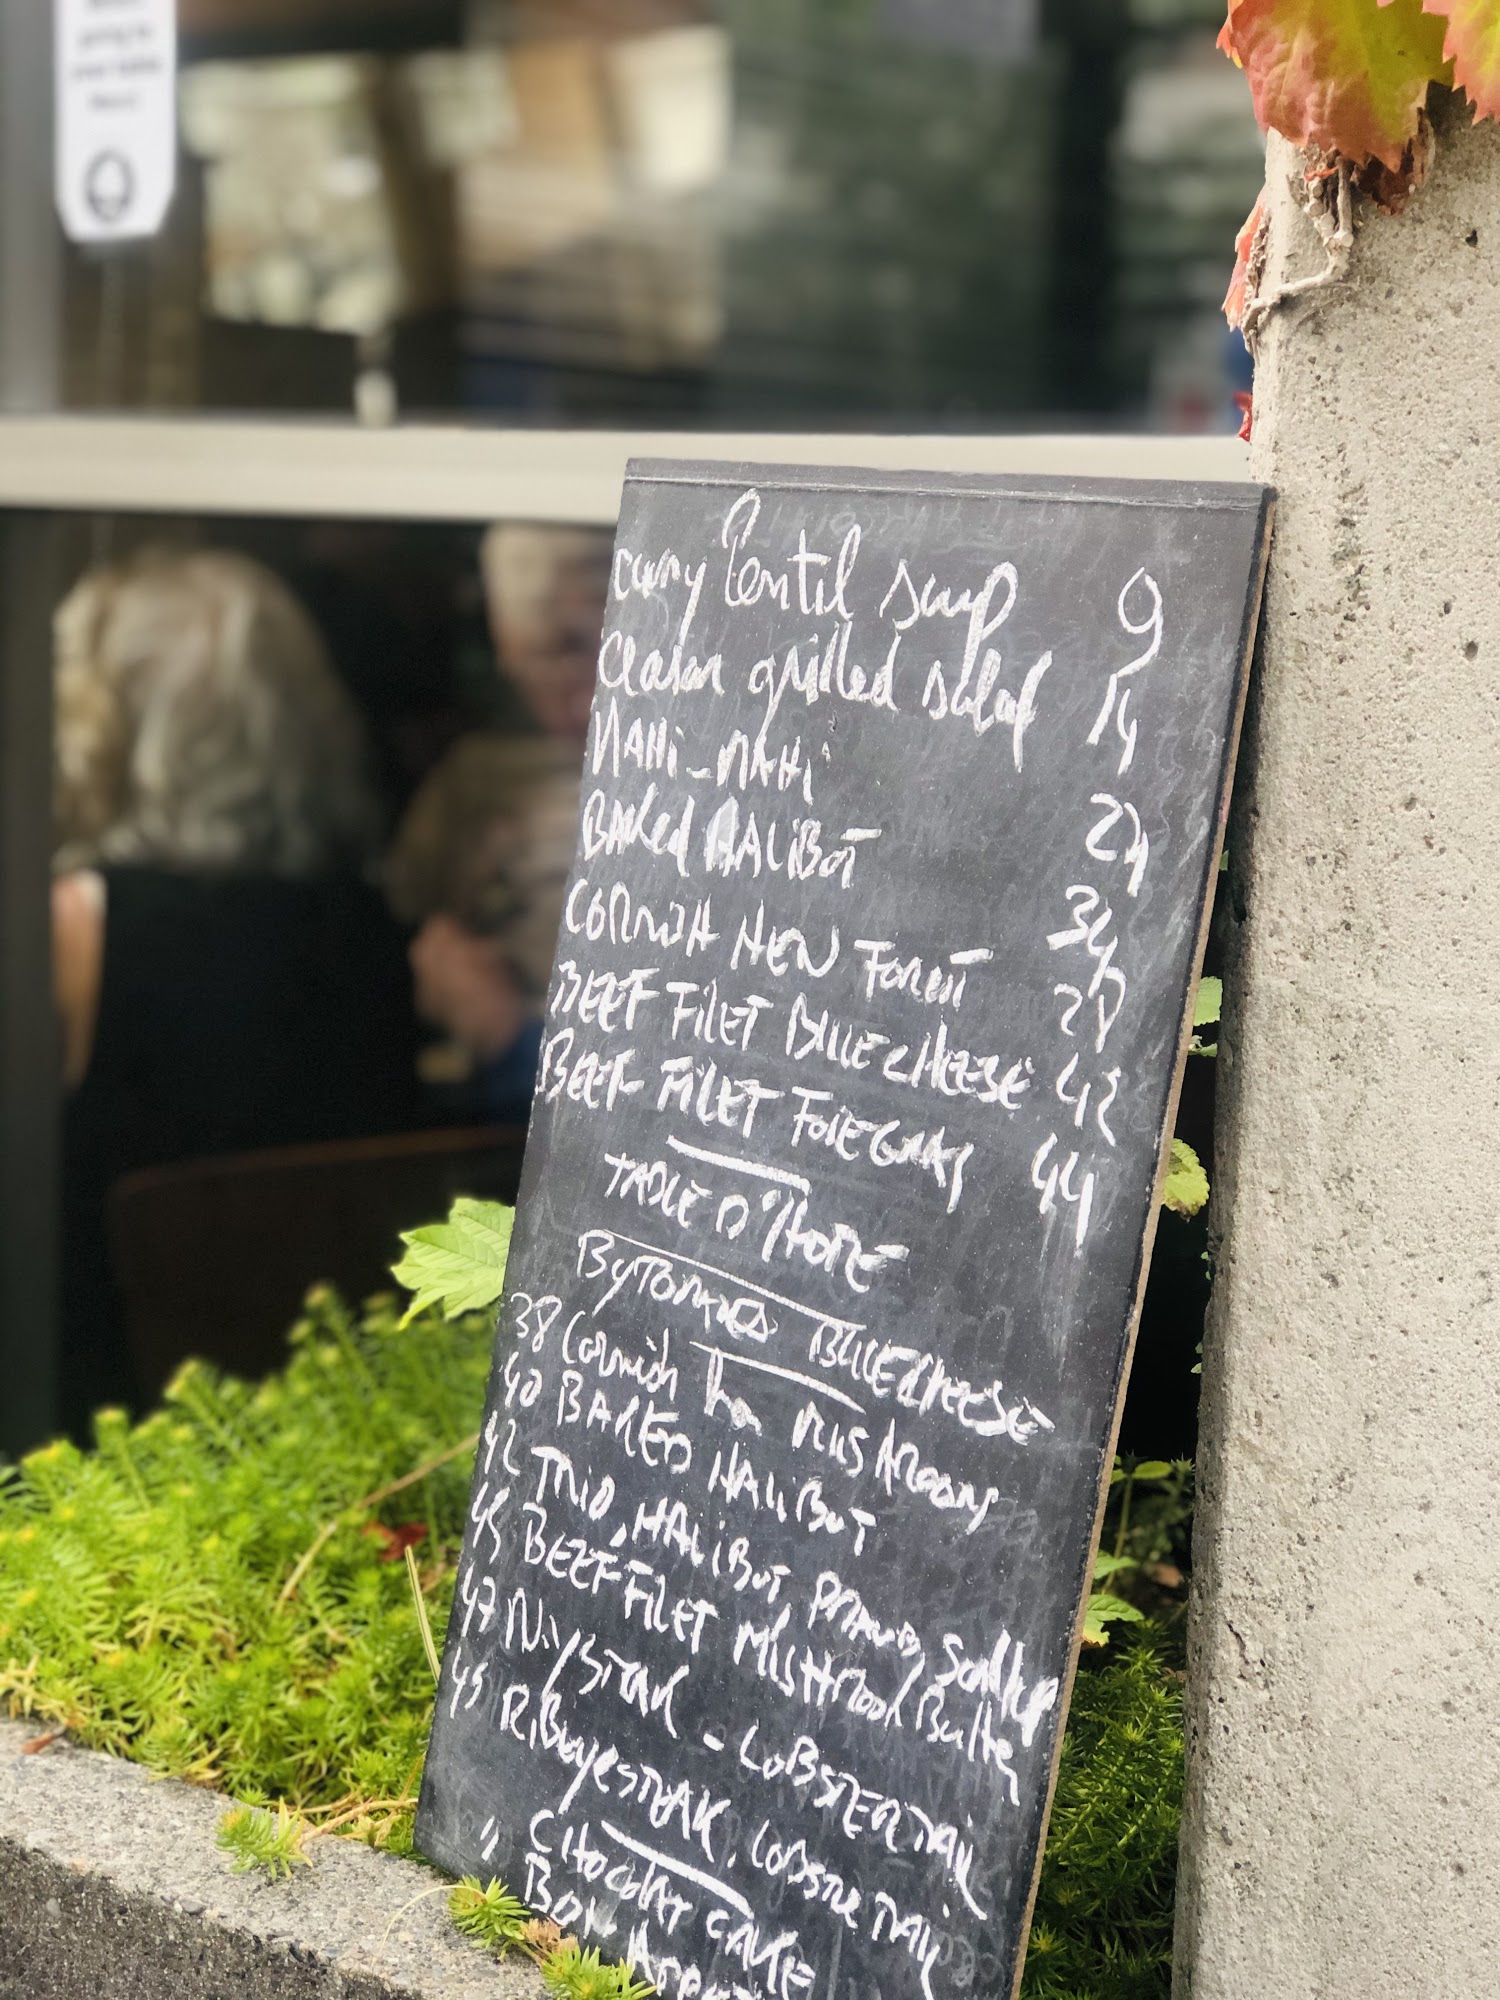 curry lentil soup 9
Cesar grilled salad 14
MAHi-MAHi 24
BAKed HALiBOT 34
CORNISH HEN FOREST 28
BEEF FiLET BLUE CHEESE 42
BEEF FiLET FOIEGRAS 44
TABLE D'HOTE
BLUECHEESE
38 Cornish Hen MUSHROOMS
40 BAKED HALiBUT
42 TRIO, HALiBUT, PRAWNS, Scallop
45 BEEF FiLET MUSHROOM Butter
47 N.Y STEAK - LOBSTERTAIL
45 RiBeye STEAK, LOBSTER TAIL
" CHOCOLAT CAKE
BON APPET